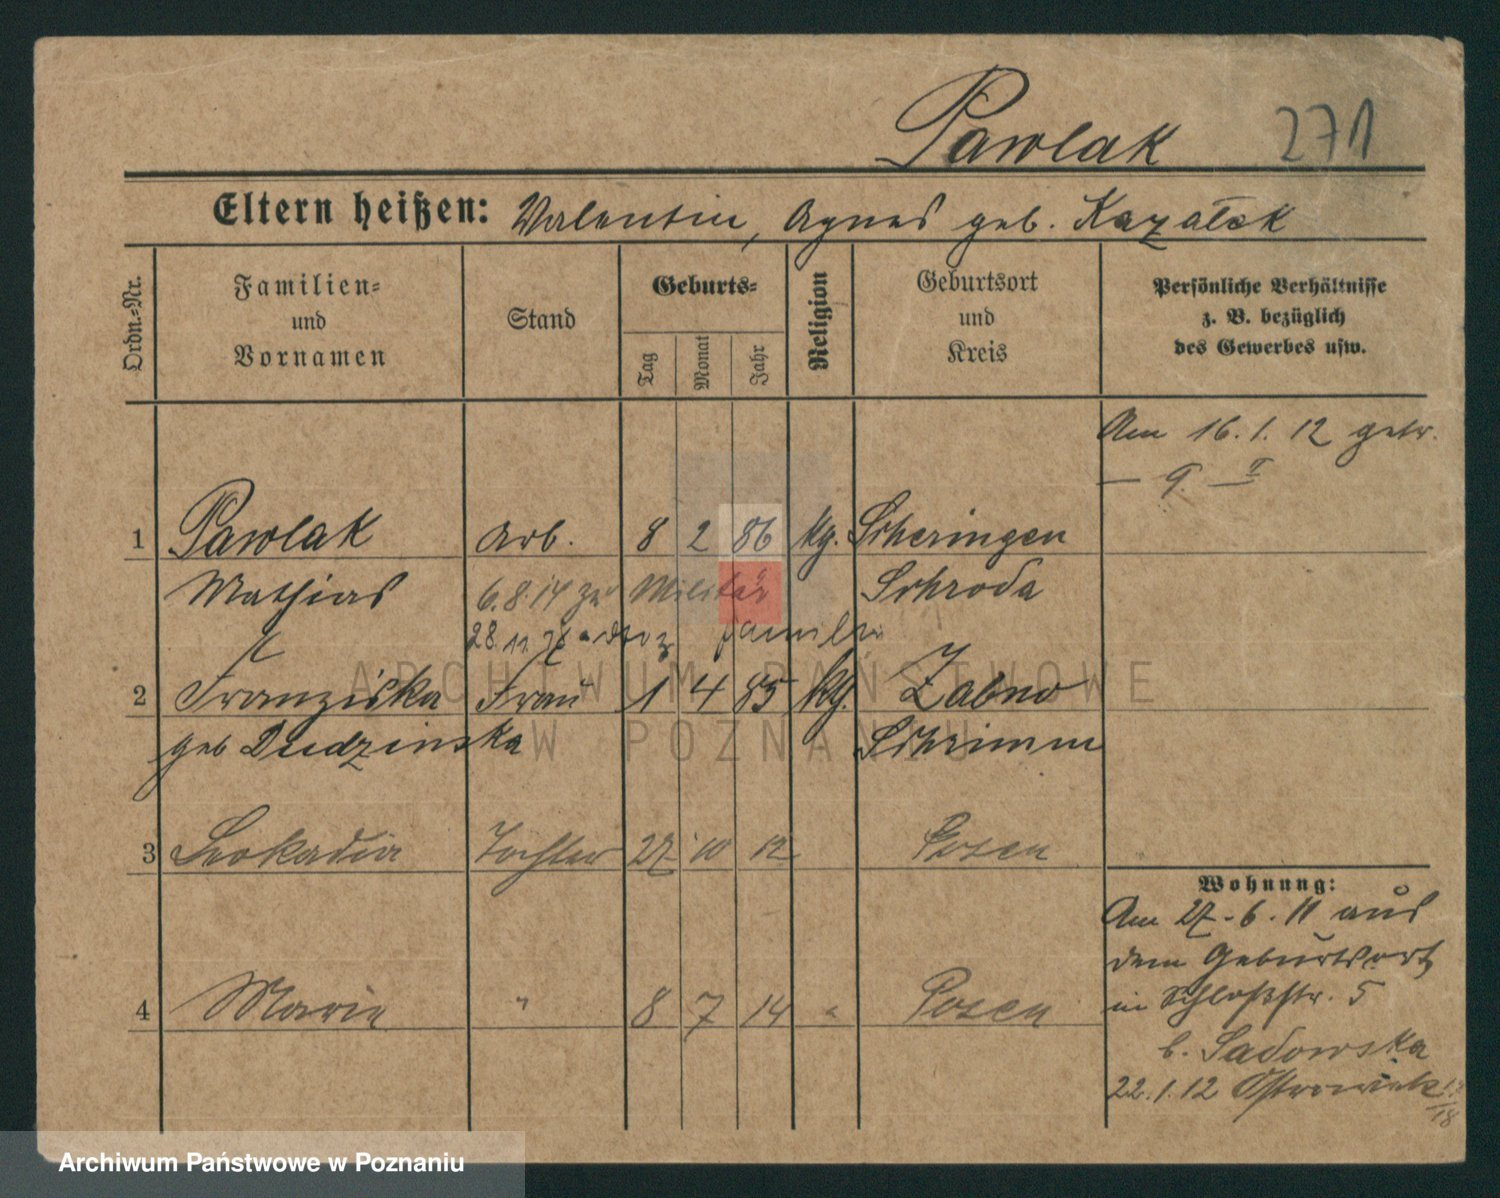 Pawlak 271
Eltern heißen: Valentin, Agnes geb. Kazałek
Ordn.-Nr.
Familien-
und
Vornamen
Stand
Geburts-
Tag
Monat
Jahr
Religion
Geburtsort
und
Kreis
Persönliche Verhältnisse
z. B. bezüglich
des Gewerbes usw.
Am 16.1.12 getr.
— 9. — II
1 Pawlak Arb. 8 2 86 kg. Scheringen
Mathias 6.8.14 zu Militär Schroda
28.11. Familie
2 Franziska Frau 1 4 85 kg. Zabno
geb Dudzinska Schrimm
3 Leokadia Tochter 27 10 12 Posen
4 Marie " 8 7 14 " Posen
Wohnung:
Am 27.6.11 aus
dem Geburtsort
in Schloßstr. 5
b. Sadowska
22.1.12 Ostrowek 17/18
ARCHIWUM PAŃSTWOWE
W POZNANIU
Archiwum Państwowe w Poznaniu